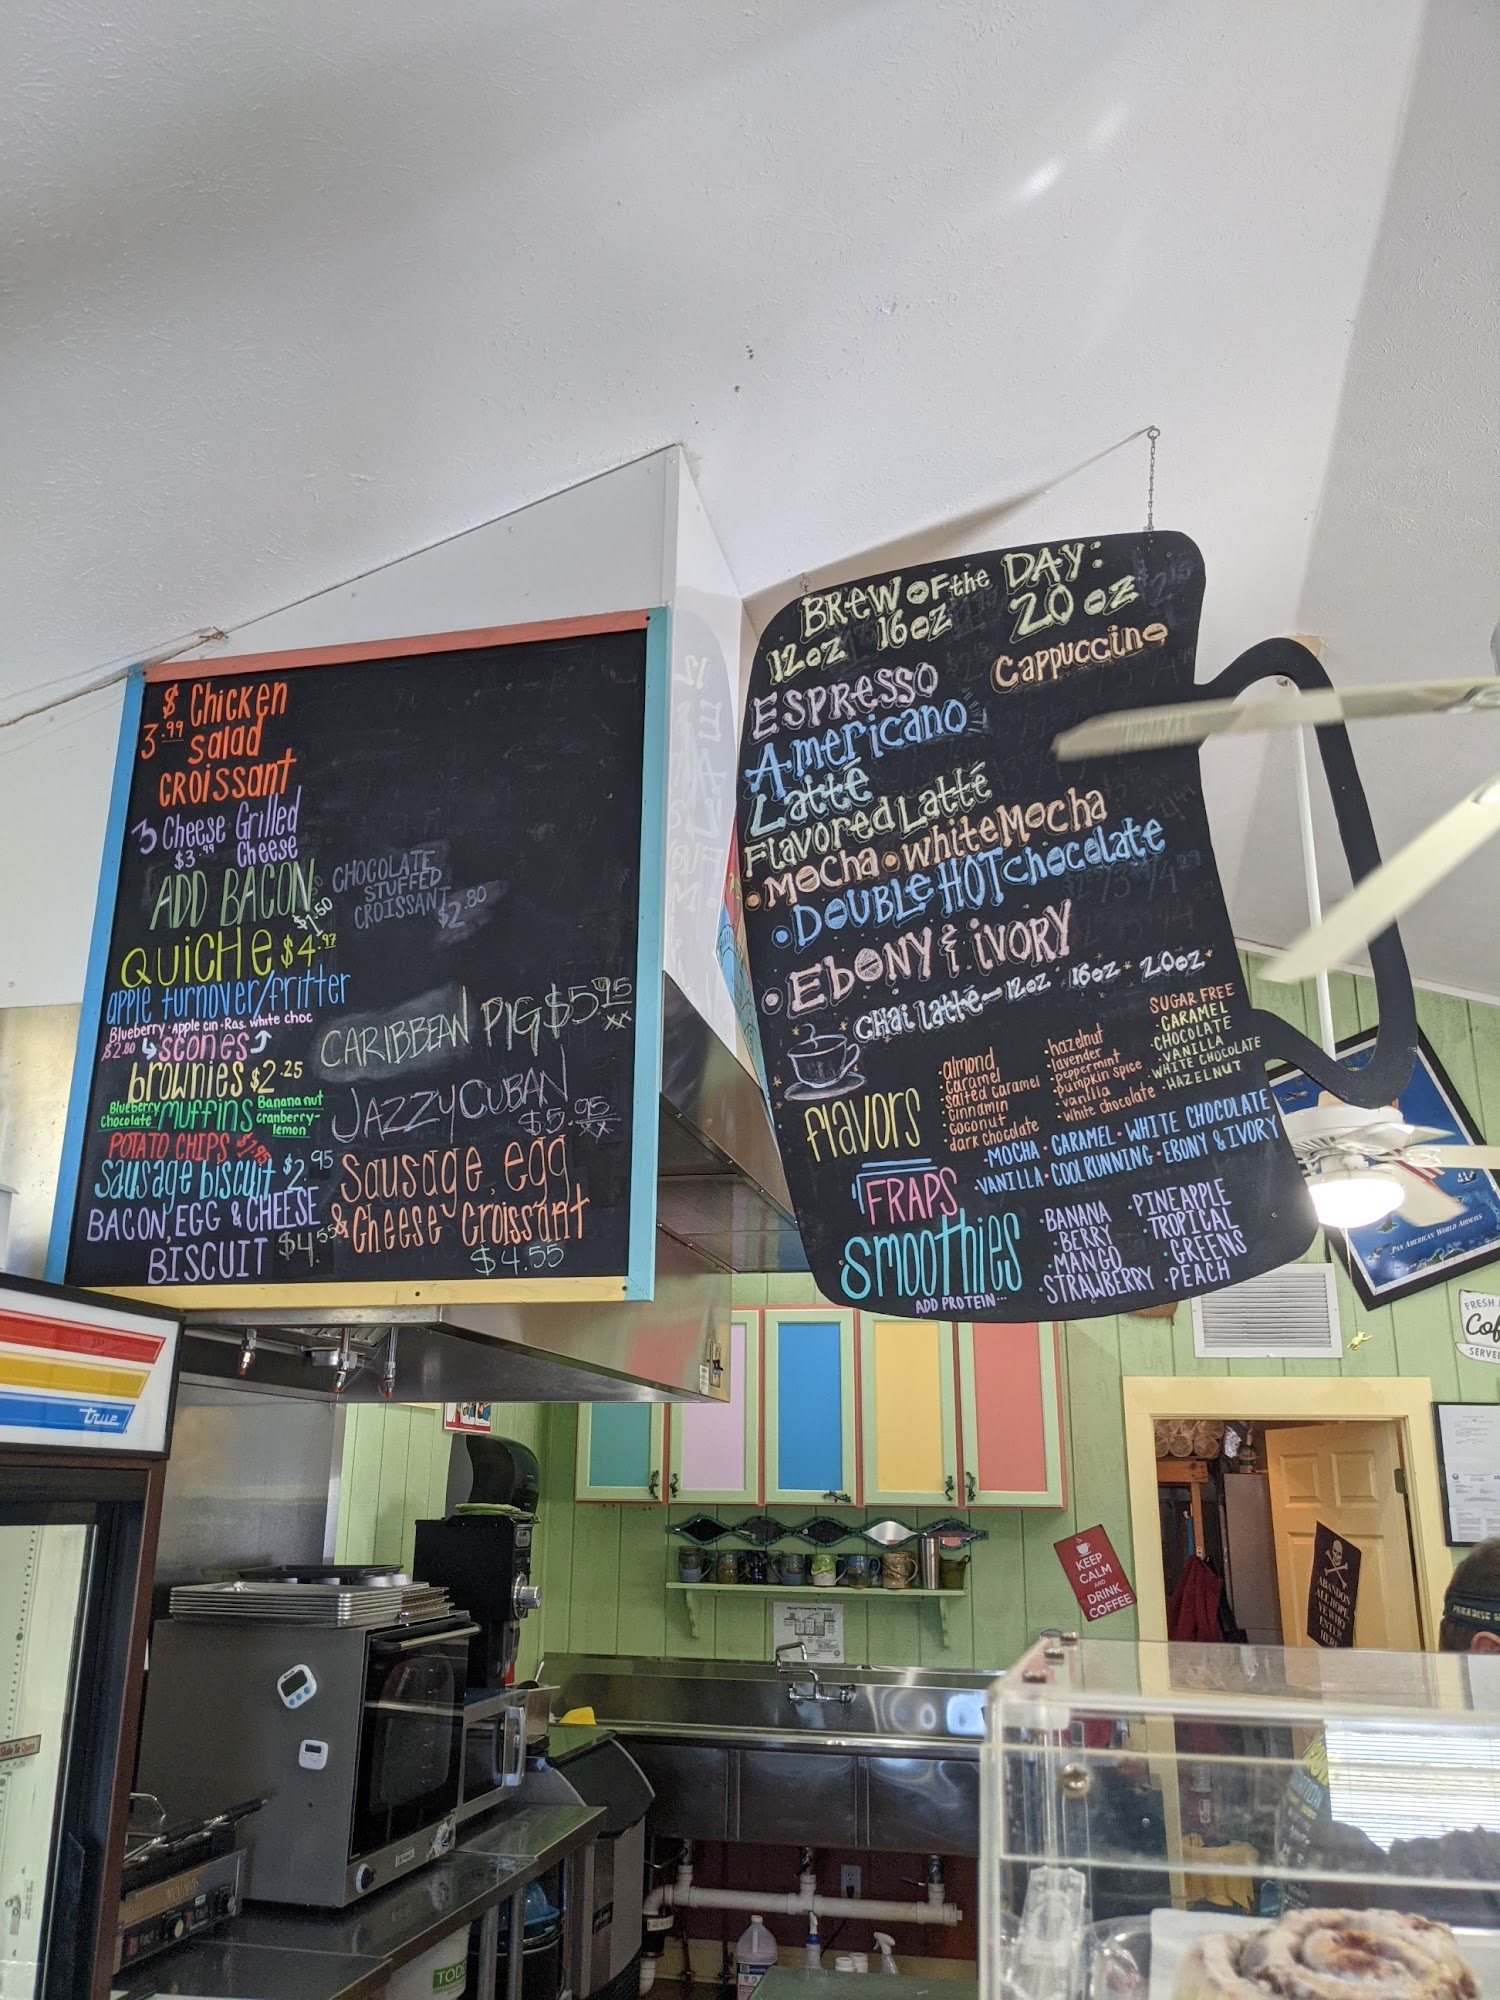 $ Chicken
3.99 salad
croissant
3 Cheese Grilled
$3.99 Cheese
ADD BACON
$1.50
CHOCOLATE
STUFFED
CROISSANT
$2.80
QUICHE $4.97
apple turnover/fritter
Blueberry · Apple cin · Ras. white choc
$2.80 scones
brownies $2.25
Blueberry muffins Banana nut
Chocolate cranberry-
lemon
POTATO CHIPS $1.95
sausage biscuit $2.95
BACON, EGG & CHEESE
BISCUIT $4.55
CARIBBEAN PIG $5.95
JAZZY CUBAN
$5.95
sausage, egg
& Cheese Croissant
$4.55
BREW OF the DAY:
12oz 16oz 20 oz
ESPRESSO
Cappuccino
Americano
Latté
Flavored Latté
· Mocha · white Mocha
· DOUBLE HOT chocolate
· EBONY & IVORY
Chai latté - 12oz · 16oz · 20oz
flavors
· almond
· caramel
· salted caramel
· cinnamin
· coconut
· dark chocolate
· hazelnut
· lavender
· peppermint
· pumpkin spice
· vanilla
· white chocolate
SUGAR FREE
· CARAMEL
· CHOCOLATE
· VANILLA
· WHITE CHOCOLATE
· HAZELNUT
FRAPS
· MOCHA · CARAMEL · WHITE CHOCOLATE
· VANILLA · COOL RUNNING · EBONY & IVORY
smoothies
ADD PROTEIN...
· BANANA
· BERRY
· MANGO
· STRAWBERRY
· PINEAPPLE
· TROPICAL
· GREENS
· PEACH
PAN AMERICAN WORLD AIRWAYS
FRESH
Cof
SERVED
true
KEEP
CALM
AND
DRINK
COFFEE
ABANDON
ALL HOPE,
YE WHO
ENTER
HERE